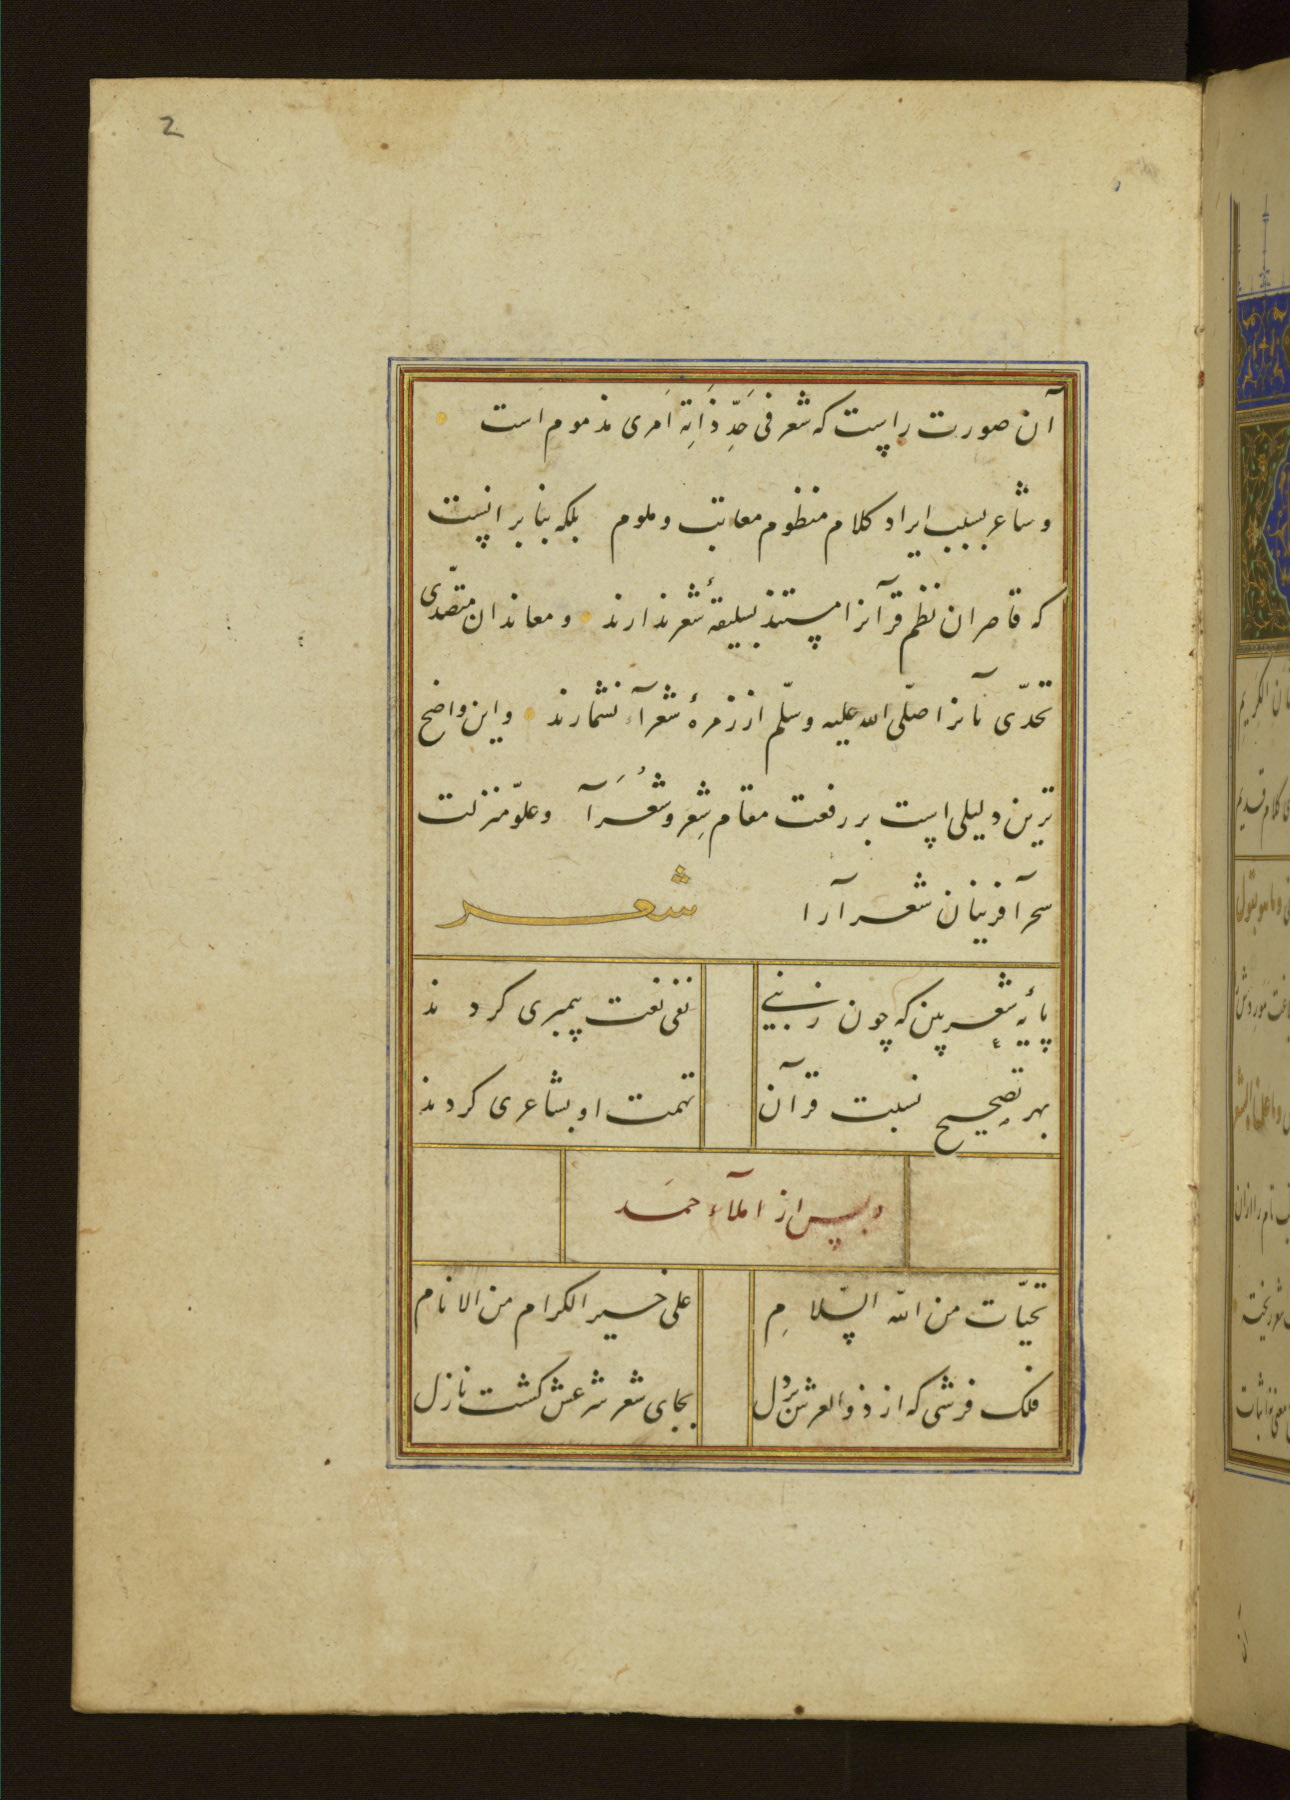 2
آن صورت راست که شعر فی حَدِّ ذَاتِهِ اَمری مذموم است
و شاعر بسبب ایراد کلام منظوم معاتب و ملوم بلکه بنا بر انست
که قاصران نظم قرآنرا مستند بسلیقهٔ شعر ندارند و معاندان متصدّی
تحدّی آنرا صلّی الله علیه وسلّم از زمرهٔ شعرآء نشمارند و این واضح
ترین دلیلی است بر رفعت مقام شِعر و شُعَرآ و علوّ منزلت
سحرآفرینان شعرآرا شعر
پایهٔ شعر بین که چون ز نبی نفی نعت پیمبری کردند
بهر تصحیح نسبت قرآن تهمت او بشاعری کردند
و پس از املآء حمد
تحیّات من الله السّلامِ علی خیر الکرام من الانام
فلک فرشی که از ذوالعرش بر دل بجای شعر شرعش کشت نازل